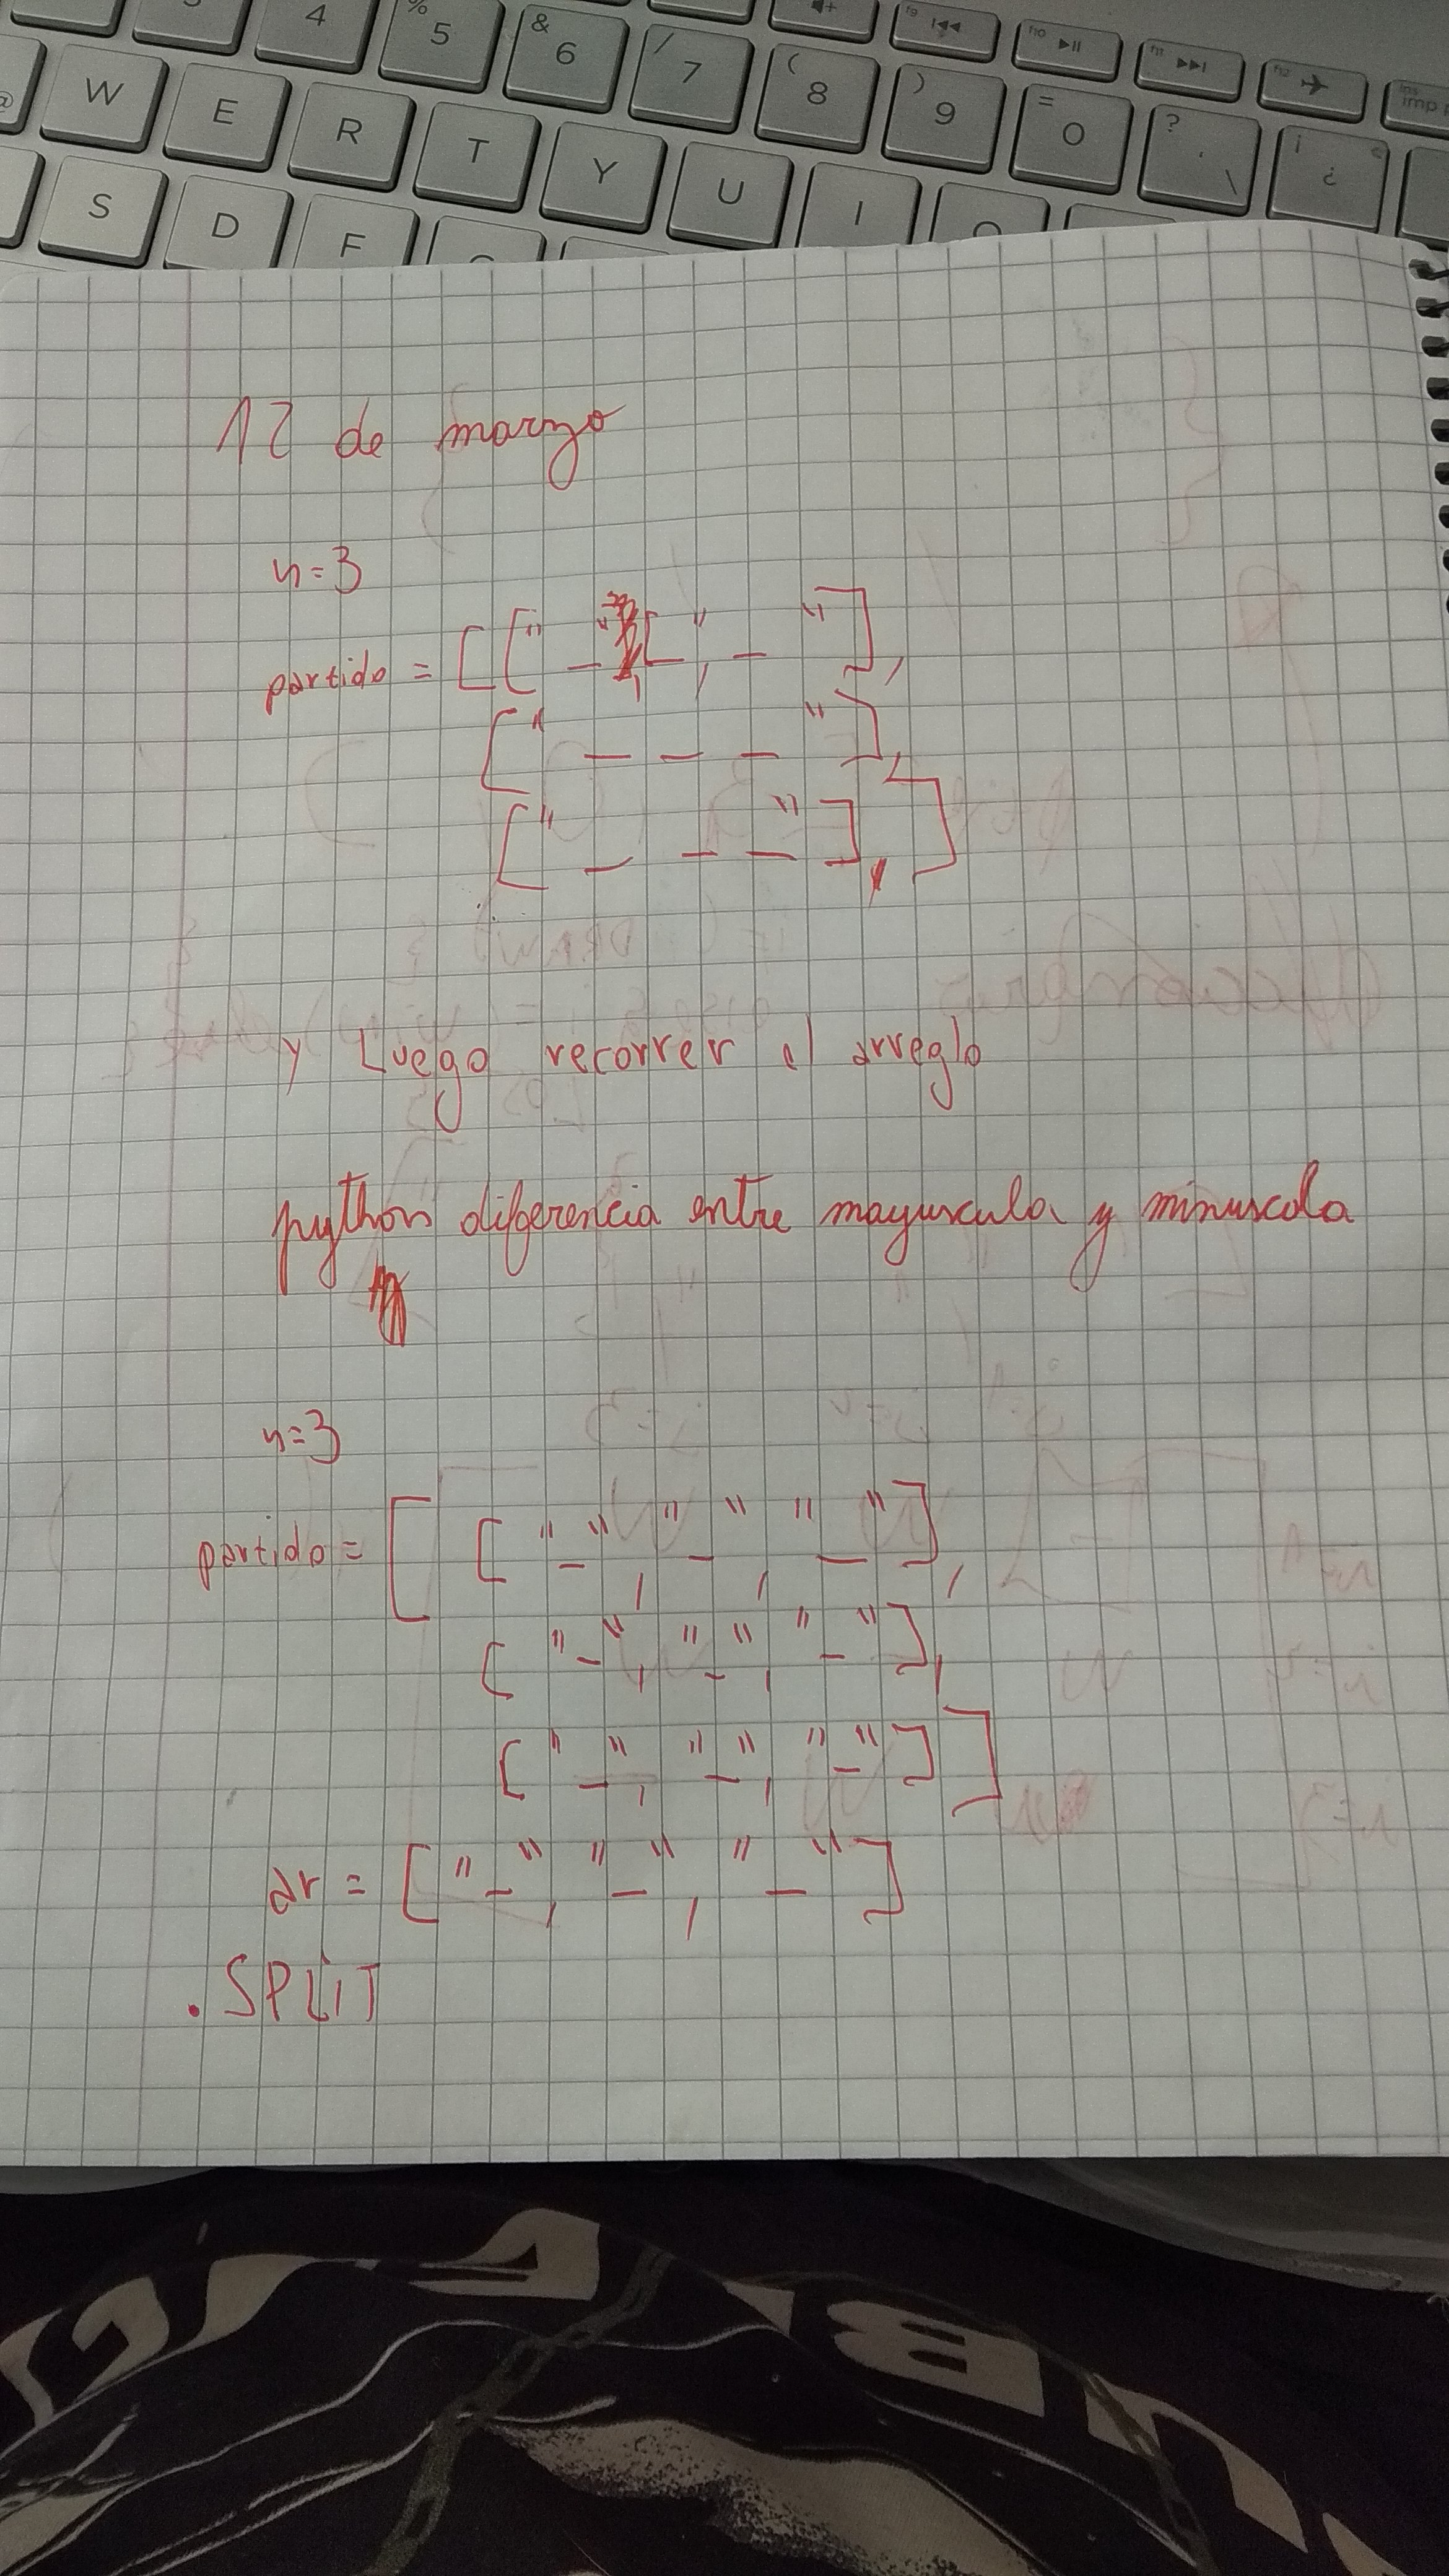 % & / ( ) =
4 5 6 7 8 9 0 ? ' \ ¡ ¿
f9 f10 f11 f12 ins
imp
W E R T Y U I
S D F
12 de marzo
n=3
partido = [["_", "_", "_"],
["_ _ _"],
["_ _ _"]]
y Luego recorrer el arreglo
python diferencia entre mayuscula y minuscola
n=3
partido = [ ["_", "_", "_"],
["_", "_", "_"],
["_", "_", "_"] ]
ar = ["_", "_", "_"]
. SPLIT